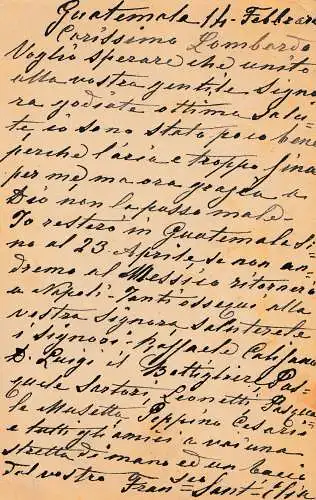 Guatemala 14 Febbraio
Carissimo Lombardo
Voglio sperare che unito
alla vostra gentile Signo
ra godiate ottima salu
te, io sono stato poco bene
perche l'aria e troppo fina
per me ma ora grazia a
Dio non la passo male-
Io resterò in Guatemala si
no al 23 Aprile, se non an
dremo al Messico ritornerò
a Napoli- Tanti ossequi alla
vostra Signora salutatele
i signori: Raffaele Califano
D. Luigi il Bottiglieri Pas
quale Sartori, Leonetti, Pasqua
le Musetta Peppino Cesario
e tutti gli amici a voi una
stretta di mano ed un bacio
dal vostro
Fran Sant'Elia